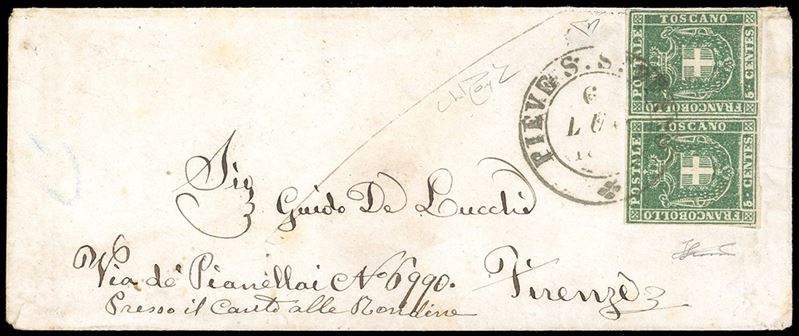 TOSCANO
POSTALE
5 CENTES
FRANCOBOLLO
TOSCANO
POSTALE
5 CENTES
FRANCOBOLLO
PIEVE S. S.
6
LUG
Sig
Guido De Lucchi
Via de' Pianellai No 6990.
Firenze
Presso il Canto alle Rondine